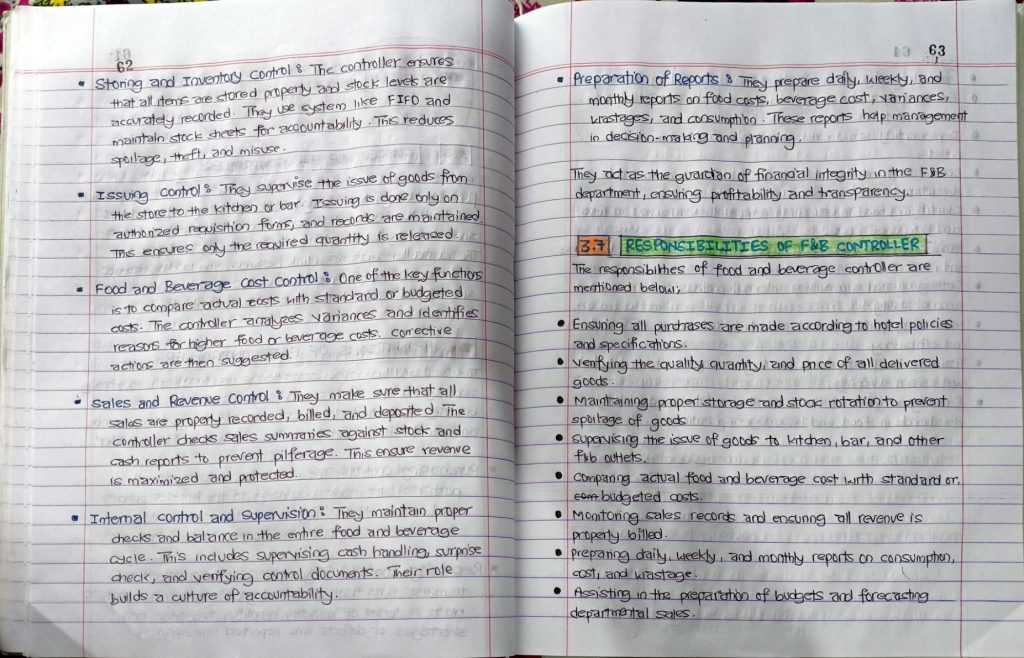 62
• Storing and Inventory Control : The controller ensures
that all items are stored property and stock levels are
accurately recorded. They use system like FIFO and
maintain stock sheets for accountability. This reduces
spoilage, theft, and misuse.
• Issuing Control : They supervise the issue of goods from
the store to the kitchen or bar. Issuing is done only on
authorized requisition forms, and records are maintained.
This ensures only the required quantity is released.
• Food and Beverage Cost Control : One of the key functions
is to compare actual costs with standard or budgeted
costs. The controller analyzes variances and identifies
reasons for higher food or beverage costs. Corrective
actions are then suggested.
• Sales and Revenue Control : They make sure that all
sales are properly recorded, billed, and deposited. The
controller checks sales summaries against stock and
cash reports to prevent pilferage. This ensure revenue
is maximized and protected.
• Internal control and Supervision : They maintain proper
checks and balance in the entire food and beverage
cycle. This includes supervising cash handling, surprise
check, and verifying control documents. Their role
builds a culture of accountability.
63
• Preparation of Reports : They prepare daily, weekly, and
monthly reports on food costs, beverage cost, variances,
wastages, and consumption. These reports help management
in decision-making and planning.
They act as the guardian of financial integrity in the F&B
department, ensuring profitability and transparency.
3.7 RESPONSIBILITIES OF F&B CONTROLLER
The responsibilities of food and beverage controller are
mentioned below;
• Ensuring all purchases are made according to hotel policies
and specifications.
• Verifying the quality quantity, and price of all delivered
goods.
• Maintaining proper storage and stock rotation to prevent
spoilage of goods
• Supervising the issue of goods to kitchen, bar, and other
f&b outlets.
• Comparing actual food and beverage cost with standard or,
budgeted costs.
• Monitoring sales records and ensuring all revenue is
properly billed.
• Preparing daily, weekly, and monthly reports on consumption,
cost, and wastage.
• Assisting in the preparation of budgets and forecasting
departmental sales.